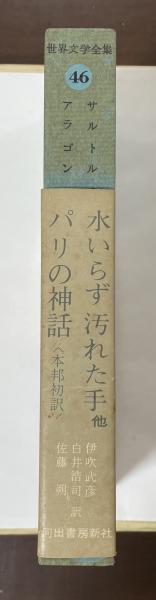 世界文学全集
46
サルトル
アラゴン
水いらず 汚れた手 他
パリの神話〈本邦初訳〉
伊吹武彦
白井浩司 訳
佐藤 朔
河出書房新社